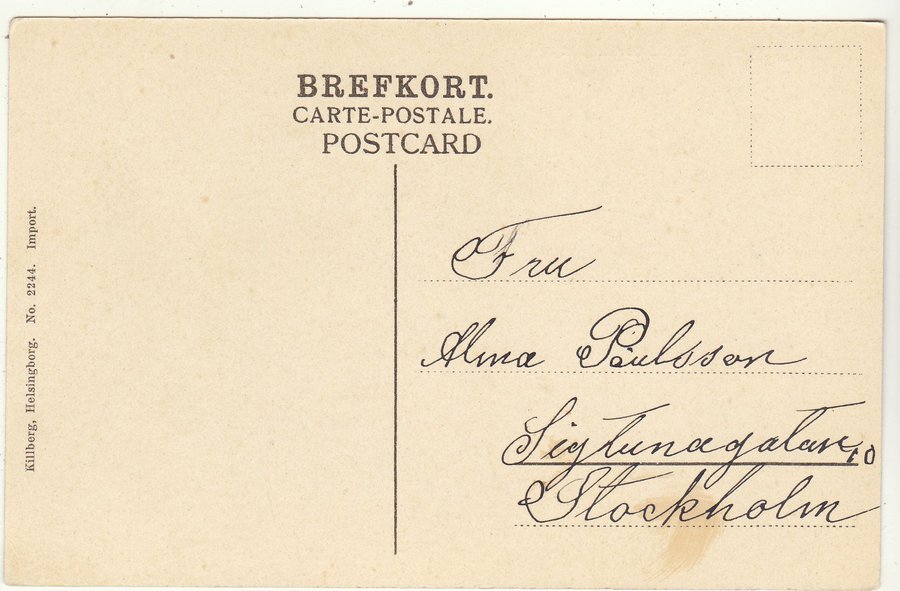 BREFKORT.
CARTE-POSTALE.
POSTCARD
Killberg, Helsingborg. No. 2244. Import.
Fru
Alma Paulsson
Sigtunagatan 10
Stockholm